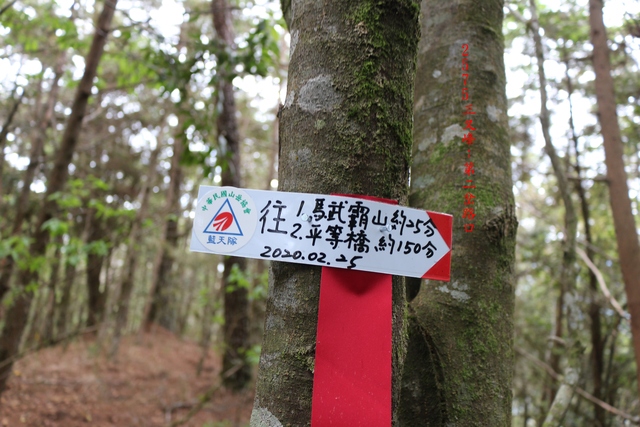 中華民國山岳協會
藍天隊
往
1.馬武霸山約25分
2.平等橋、約150分
2020.02.25